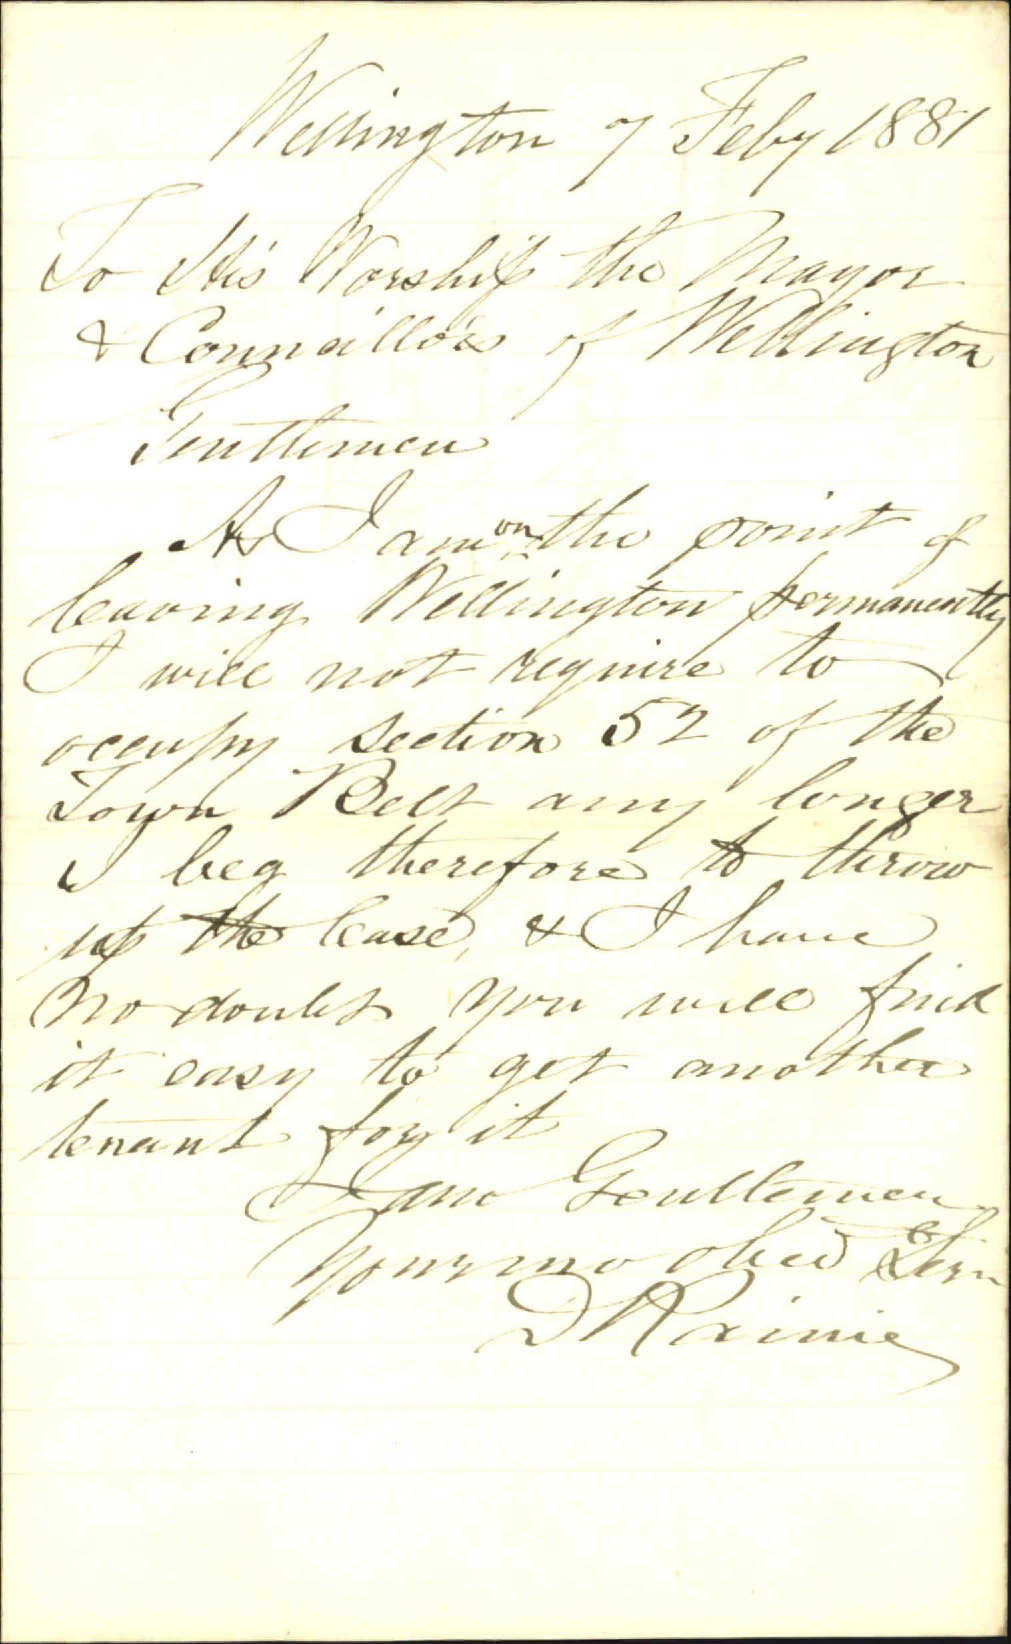 Wellington 7 Feby 1881
To His Worship the Mayor
& Councillors of Wellington
Gentlemen
As I am on the point of
leaving Wellington permanently
I will not require to
occupy section 52 of the
Town Belt any longer
I beg therefore to throw
up the lease, & I have
no doubt you will find
it easy to get another
tenant for it
I am Gentlemen
Your mo obed Serv
D Rainie